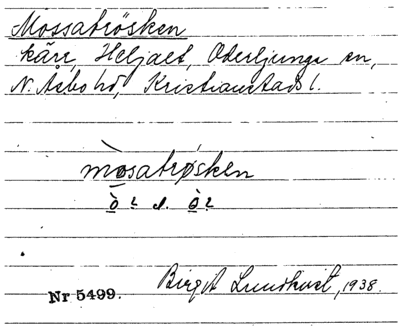 Mossatrösken
kärr, Heljalt, Oderljunga sn,
N. Åsbo hd, Kristianstads l.
mosatrøsken
ò 2 s. ò 2
Birgit Lundkvist, 1938.
Nr 5499.